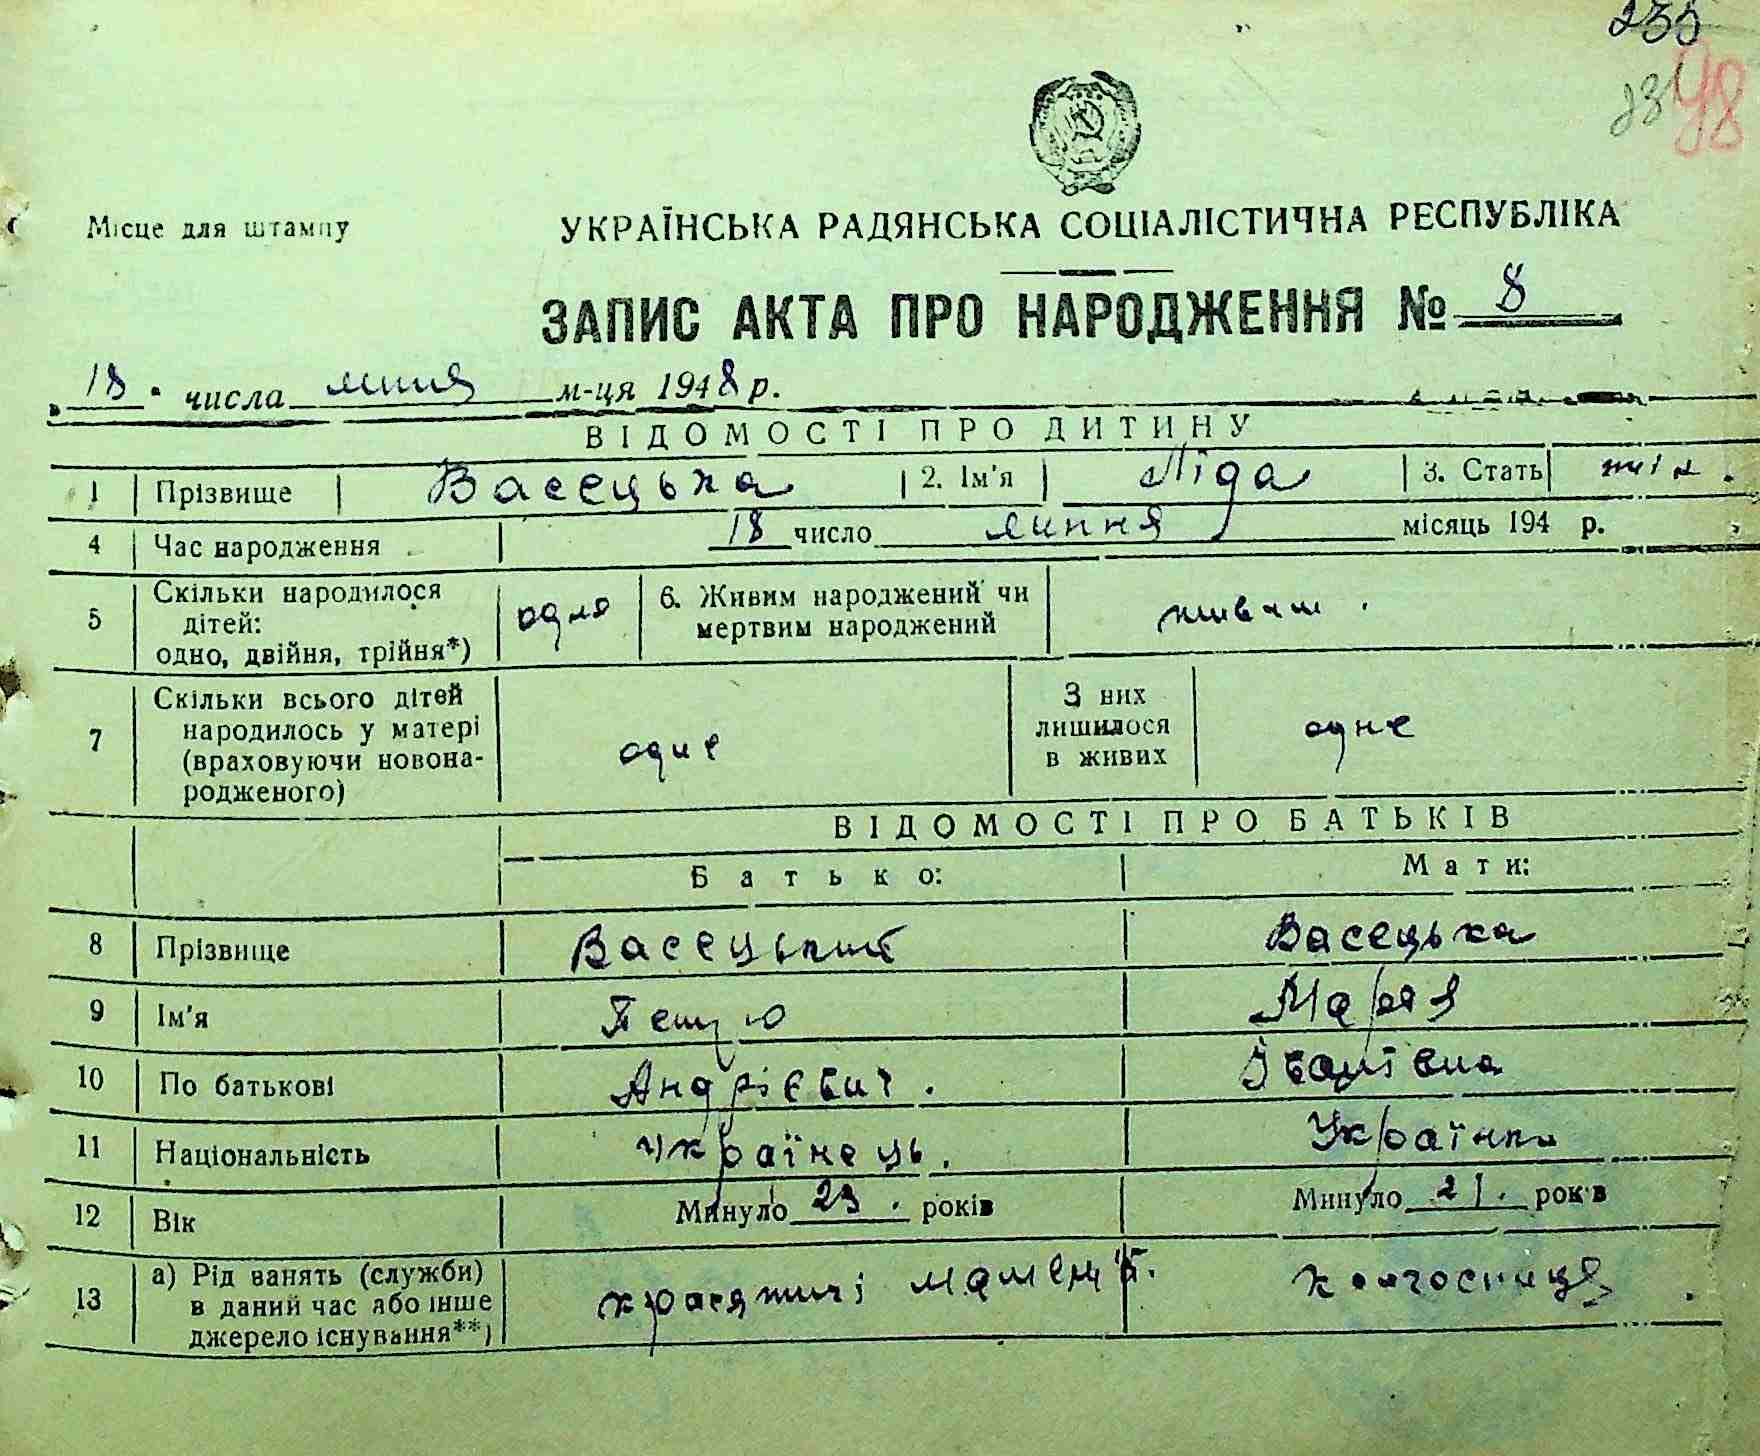 235
231
98
Місце для штампу
УКРАЇНСЬКА РАДЯНСЬКА СОЦІАЛІСТИЧНА РЕСПУБЛІКА
ЗАПИС АКТА ПРО НАРОДЖЕННЯ № 8
„18" числа липня м-ця 1948 р.
ВІДОМОСТІ ПРО ДИТИНУ
1 Прізвище Васецька 2. Ім'я Ліда 3. Стать жін.
4 Час народження 18 число липня місяць 194 р.
5 Скільки народилося дітей: одно, двійня, трійня*) одня 6. Живим народжений чи мертвим народжений живим.
7 Скільки всього дітей народилось у матері (враховуючи новонародженого) одне З них лишилося в живих одне
ВІДОМОСТІ ПРО БАТЬКІВ
Батько: Мати:
8 Прізвище Васецький Васецька
9 Ім'я Петро Марія
10 По батькові Андрієвич. Іванівна
11 Національність Українець. Українка
12 Вік Минуло 23. років Минуло 21. років
13 а) Рід занять (служби) в даний час або інше джерело існування**) колгоспниця.